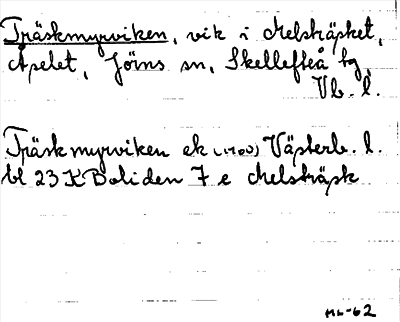 Träskmyrviken, vik i Melsträsket,
Åpelet, Jörns sn, Skellefteå tg,
Vb. l.
Träskmyrviken ek (1700) Västerb. l.
bl 23 K Boliden 7 e Melsträsk
ML-62